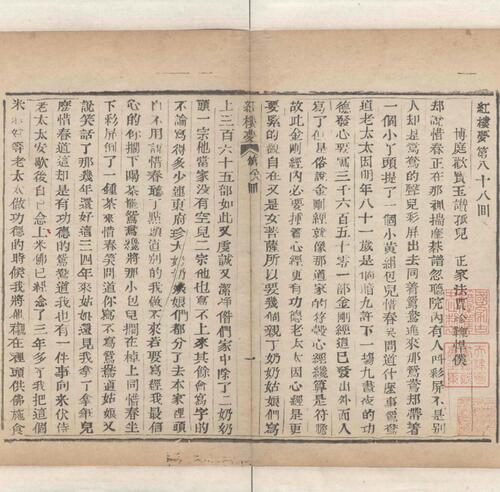 紅樓夢第八十八回
博庭歡寶玉讚孤兒　正家法賈珍鞭悍僕
却說惜春正在那裡揣摩棊譜忽聽院內有人呌彩屏不是別
人却是鴛鴦的聲兒彩屏出去同着鴛鴦進來那鴛鴦却帶着
一個小丫頭提了一個小黃絹包兒惜春笑問道什麽事鴛鴦
道老太太因明年八十一歲是個暗九許下一塲九晝夜的功
德發心要寫三千六百五十零一部金剛經這已發出外面人
寫了但是俗說金剛經就像那道家的符殼心經纔算是符
故此金剛經內必要插着心經更有功德老太太因心經是更
要緊的觀自在又是女菩薩所以要幾個親丁奶奶姑娘們寫
紅樓夢　第八八回　一
上三百六十五部如此又虔誠又潔淨偺們家中除了二奶奶
頭一宗他當家沒有空兒二宗他也寫不上來其餘會寫字的
不論寫得多少連東府珍大奶奶姨娘們都分了去本家裡頭
自不用說惜春聽了點頭道別的我做不來若要寫經我最信
心的你擱下喝茶罷鴛鴦纔將那小包兒擱在棹上同惜春坐
下彩屏倒了一鍾茶來惜春笑問道你寫不寫鴛鴦道姑娘又
說笑話了那幾年還好這三四年來姑娘還見我拿了拿筆兒
麽惜春道這却是有功德的鴛鴦道我也有一件事向來伏侍
老太太安歇後自己念上米佛已經念了三年多了我把這個
米收好等老太太做功德的時候我將他襯在裡頭供佛施食